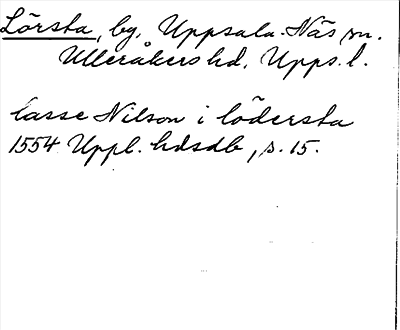 Lörsta, by, Uppsala-Näs sn.
Ulleråkers hd, Upps. l.
lasse Nilson i lödersta
1554 Uppl. hdsdb, s. 15.